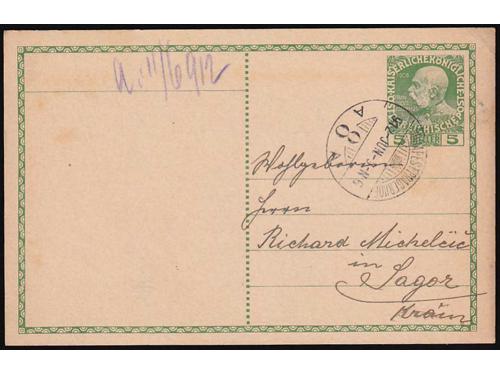 a. 11/6 912
KAISERLICHE KÖNIGLICHE ÖST
ERREICHISCHE
5 5
912 JUN
A 8 A
Wohlgeboren
Herrn
Richard Michelčič
in
Sagor
Krain